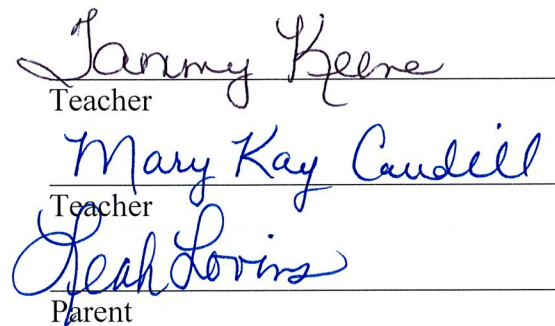 Tammy Keene
Teacher
Mary Kay Caudill
Teacher
Leah Lovins
Parent